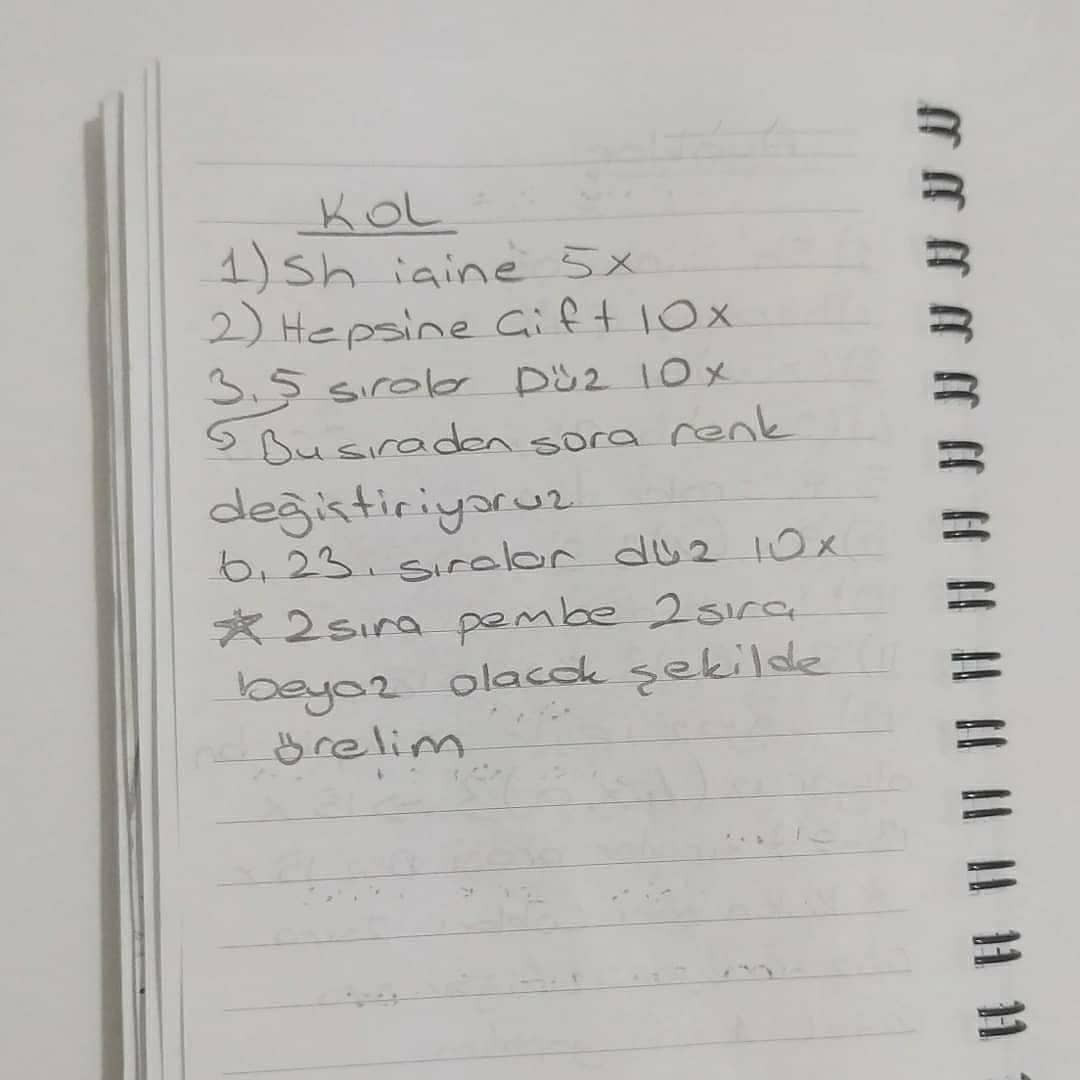 KOL
1) Sh içine 5x
2) Hepsine Çift 10x
3, 5 sıralar Düz 10x
↳ Bu sıradan sora renk
değiştiriyoruz
6, 23. sıralar düz 10x
☆ 2 sıra pembe 2 sıra
beyaz olacak şekilde
örelim